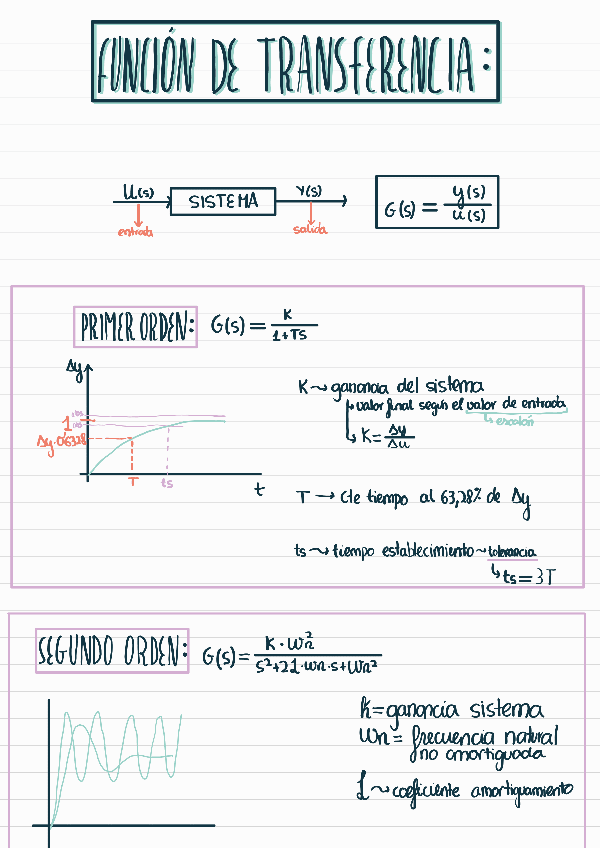 FUNCIÓN DE TRANSFERENCIA:
U(s) SISTEMA Y(s)
entrada salida
G(s) = y(s) / u(s)
PRIMER ORDEN: G(s) = K / 1+Ts
Δy
1
Δy·0'6328
T ts t
K ⇝ ganancia del sistema
↳ valor final según el valor de entrada
↳ escalón
↳ K = Δy / Δu
T → Cte tiempo al 63,28% de Δy
ts ⇝ tiempo establecimiento ~ tolerancia
↳ ts = 3T
SEGUNDO ORDEN: G(s) = K · Wn² / s²+2ζ·wn·s+Wn²
K = ganancia sistema
Wn = frecuencia natural
no amortiguada
ζ ⇝ coeficiente amortiguamiento